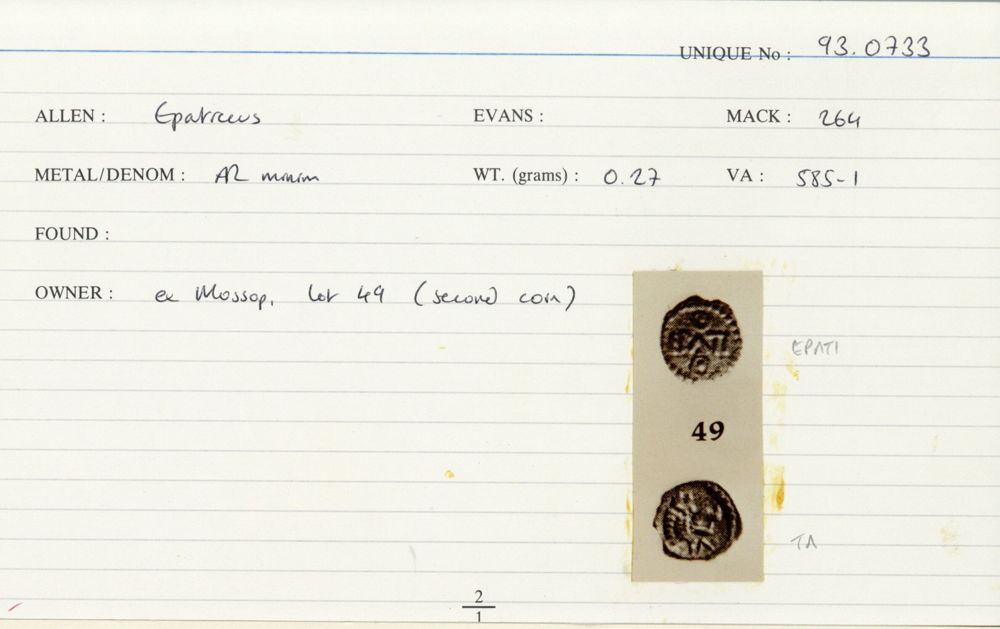 UNIQUE No : 93.0733
ALLEN : Epaticcus EVANS : MACK : 264
METAL/DENOM : AR minim WT. (grams) : 0.27 VA : 585-1
FOUND :
OWNER : ex Mossop, lot 49 (second coin)
EPATI
49
TA
2
1